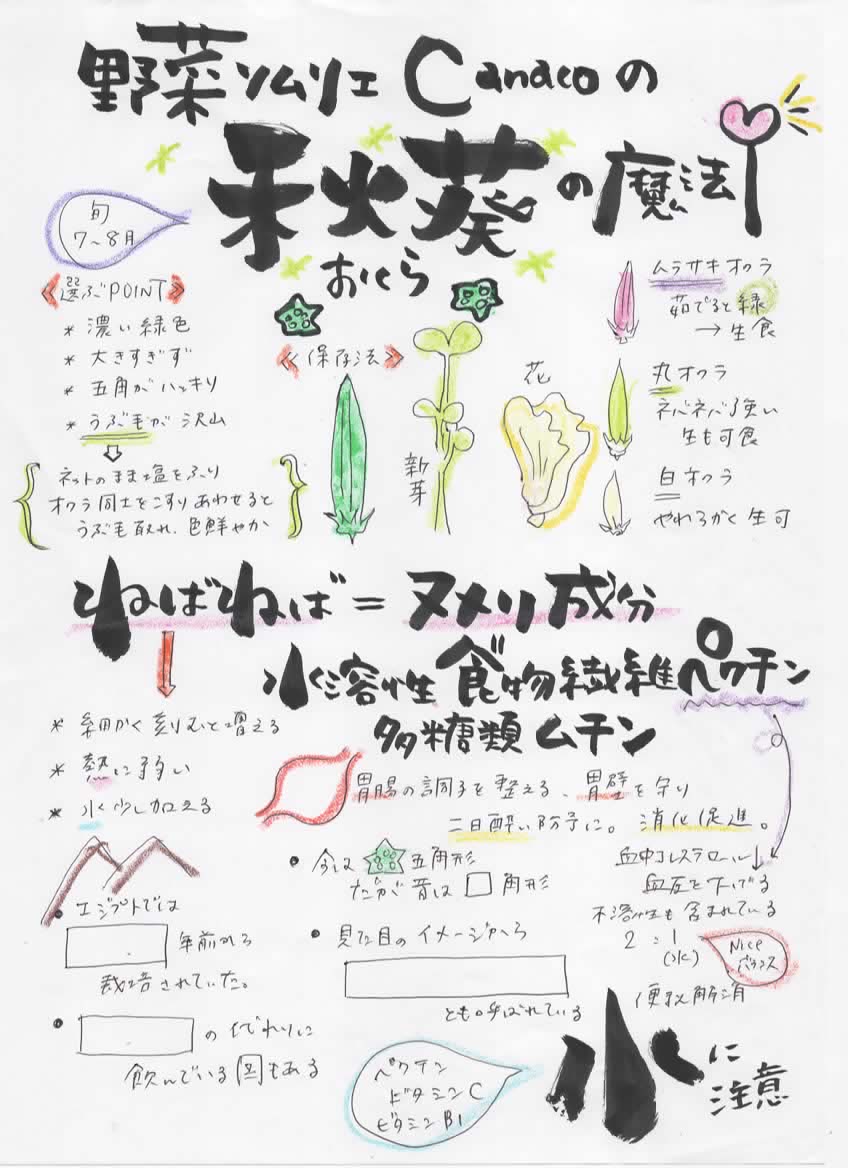 野菜ソムリエ Canacoの
秋葵の魔法
おくら
旬
7～8月
《選ぶPOINT》
* 濃い緑色
* 大きすぎず
* 五角がハッキリ
* うぶ毛が沢山
ネットのまま塩をふり
オクラ同士をこすりあわせると
うぶ毛取れ、色鮮やか
《保存法》
新芽
花
ムラサキオクラ
茹でると緑
→生食
丸オクラ
ネバネバ強い
生も可食
白オクラ
やわらかく生可
ねばねば=ヌメリ成分
水溶性食物繊維ペクチン
多糖類ムチン
* 細かく刻むと増える
* 熱に弱い
* 水少し加える
胃腸の調子を整える、胃壁を守り
二日酔い防予に。消化促進。
血中コレステロール↓
血圧を下げる
不溶性も含まれている
2:1
(水)
Nice
バランス
便秘解消
• エジプトでは
年前から
栽培されていた。
• の代わりに
飲んでいる国もある
• 今は 五角形
だが昔は 角形
• 見た目のイメージから
とも呼ばれている
ペクチン
ビタミンC
ビタミンB1
水に
注意